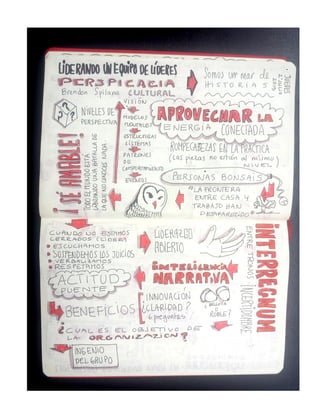 LIDERANDO UN EQUIPO DE LÍDERES
PERSPICACIA
CULTURAL
Brendan Spillane
Somos un mar de
HISTORIAS
NIVELES DE
PERSPECTIVA
VISIÓN
MODELOS
MENTALES
ESTRUCTURAS
SISTEMAS
PATRONES
DE
COMPORTAMIENTO
EVENTOS
APROVECHAR LA
ENERGÍA CONECTADA
ROMPECABEZAS EN LA PRÁCTICA
(Las piezas no están al mismo)
NIVEL
PERSONAS BONSAIS
LA FRONTERA
ENTRE CASA Y
TRABAJO HAN
DESAPARECIDO
¡SE AMABLE!
TODO EL MUNDO ESTÁ
LIBRANDO UNA BATALLA DE
LA QUE NO CONOCES NADA
CUANDO NO ESTAMOS
CERRADOS (LÍDER)
• ESCUCHAMOS
• SOSTENEMOS LOS JUICIOS
• VERBALIZAMOS
• RESPETAMOS
LIDERAZGO
ABIERTO
INTERREGNUM
ENTRE REINOS
INCERTIDUMBRE
ACTITUD
PUENTE
INTELIGENCIA
NARRATIVA
BENEFICIOS
INNOVACIÓN
¿CLARIDAD?
6 preguntas
ROBLE?
¿CUAL ES EL OBJETIVO DE
LA ORGANIZACIÓN?
INGENIO
DEL GRUPO